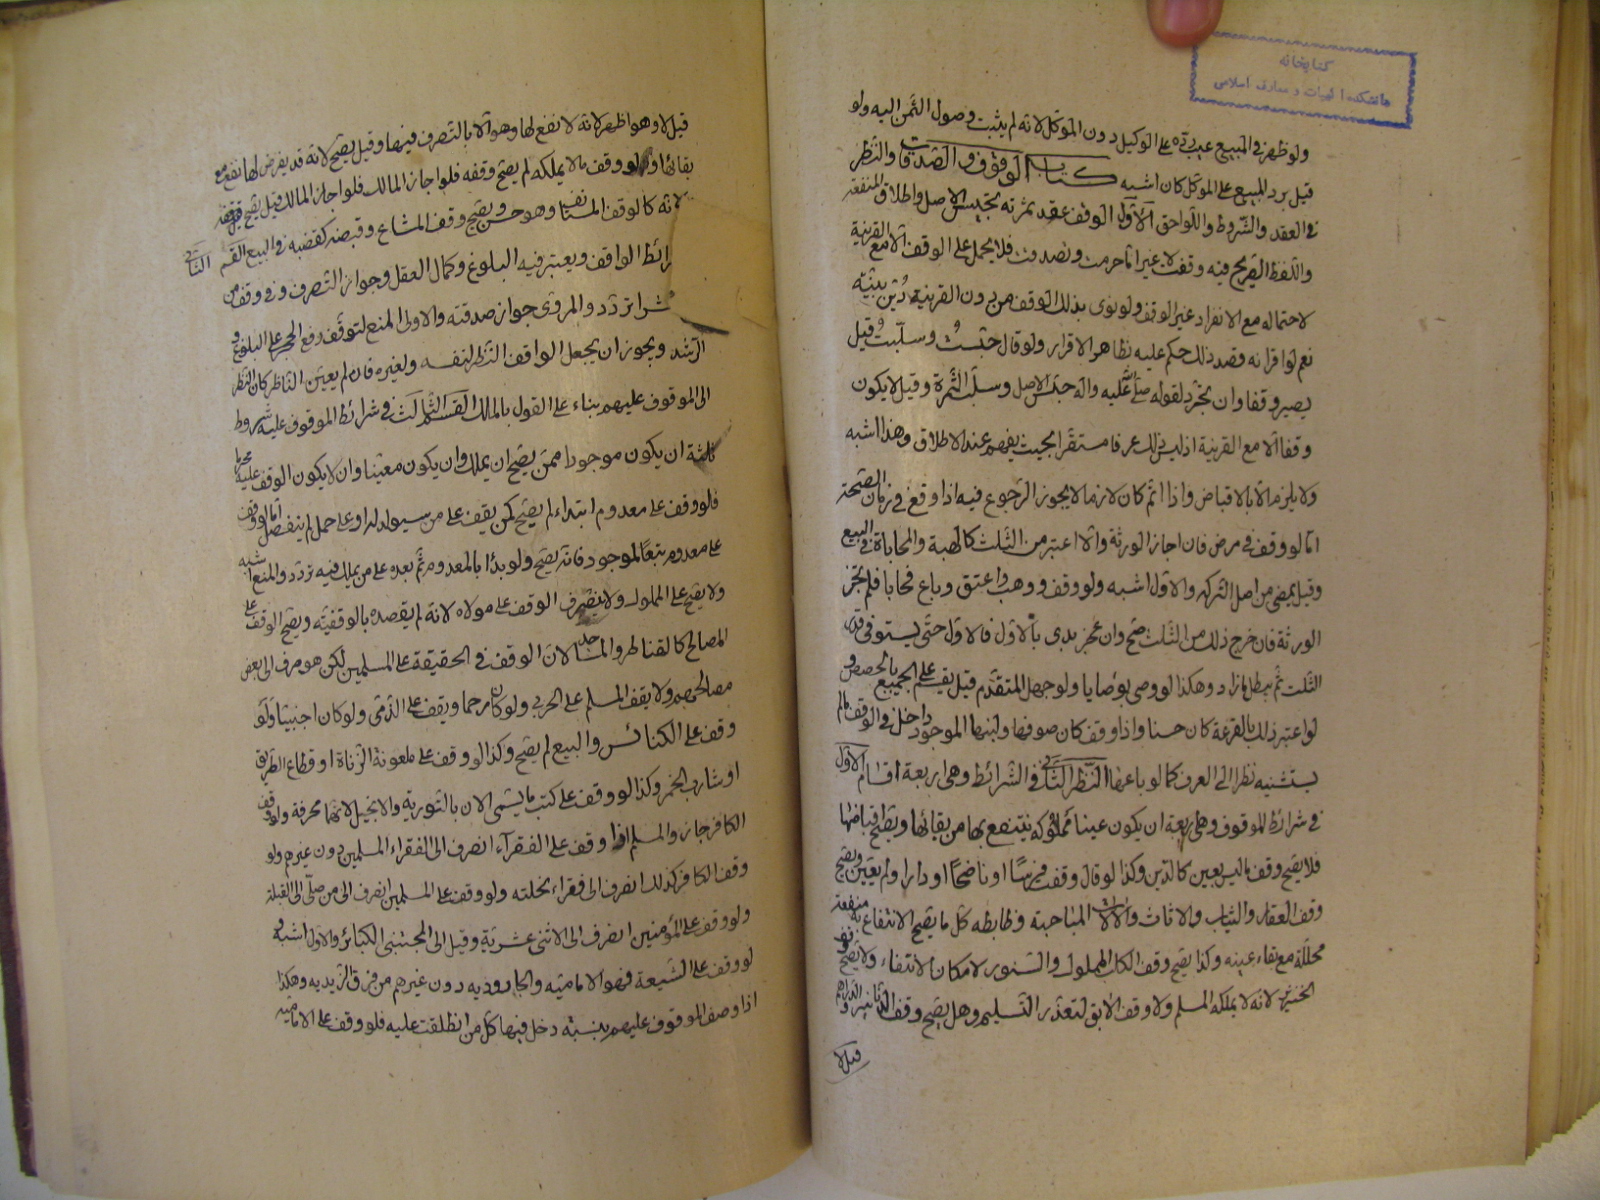 كتابخانه
دانشكده الهيات و معارف اسلامى
ولو ظهر فى المبيع عيب رده على الوكيل دون الموكل لانه لم يثبت وصول الثمن اليه ولو
قيل برد المبيع على الموكل كان اشبه كتاب الوقوف و الصدقات والنظر
فى العقد والشروط واللواحق الاول الوقف عقد ثمرته تحبيس الاصل واطلاق المنفعة
واللفظ الصريح فيه وقفت لا غير اما حرمت وتصدقت فلا يحمل على الوقف الا مع القرينة
لاحتماله مع الانفراد غير الوقف ولو نوى بذلك الوقف من دون القرينة دين بنيته
نعم لو اقر انه قصد ذلك حكم عليه بظاهر الاقرار ولو قال حبست وسبلت قيل
يصير وقفا وان تجرد لقوله صلى الله عليه واله حبس الاصل وسبل الثمرة وقيل لا يكون
وقفا الا مع القرينة اذ ليس ذلك عرفا مستقرا بحيث يفهم عند الاطلاق وهذا اشبه
ولا يلزم الا بالاقباض واذا اتم كان لازما لا يجوز الرجوع فيه اذا وقع فى زمان الصحة
اما لو وقف فى مرض فان اجاز الورثة والا اعتبر من الثلث كالهبة والمحاباة فى البيع
وقيل يمضى من اصل التركه والاول اشبه ولو وقف ووهب واعتق وباع فحابا فلم يجز
الورثة فان خرج ذلك من الثلث صح وان عجز بدى بالاول فالاول حتى يستوفى قدر
الثلث ثم يبطل ما زاد وهكذا لو وصى بوصايا ولو جهل المتقدم قيل يقسم على الجميع بالحصص و
لو اعتبر ذلك بالقرعة كان حسنا واذا وقف كان صوفها ولبنها الموجود داخل فى الوقف مالم
يستثنيه نظرا الى العرف كما لو باعها النظر الثانى فى الشرائط وهى اربعة اقسام الاول
فى شرائط الموقوف وهى اربعة ان يكون عينا مملوكه ينتفع بها مع بقائها ويصح اقباضها
فلا يصح وقف ما ليس بعين كالدين وكذا لو قال وقفت فرسًا او ناضحًا او دارا ولم يعين ويصح
وقف العقار والثياب والاثاث والالات المباحة وظابطه كل ما يصح الانتفاع به منفعة
محللة مع بقاء عينه وكذا يصح وقف الكلب المملوك والسنور لامكان الانتفاء ولا يصح وقف
الخنزير لانه لا يملكه المسلم ولا وقف الابق لتعذر التسليم وهل يصح وقف الدنانير والدراهم
قيل لا
قيل لا وهو اظهر لانه لا نفع لها وهو الا بالتصرف فيها وقيل يصح لانه قد يفرض لها نفع مع
بقائها ولو وقف ما لا يملكه لم يصح وقفه فلو اجاز المالك قيل يصح
لانه كالوقف المستانف وهو حسن ويصح وقف المشاع وقبضه كقبضه فى البيع القسم الثانى
رائط الواقف ويعتبر فيه البلوغ وكمال العقل وجواز التصرف وفى وقف من
شرا تردد والمروى جواز صدقته والاولى المنع لتوقف رفع الحجر على البلوغ و
الرشد ويجوز ان يجعل الواقف النظر لنفسه ولغيره فان لم يعين الناظر كان النظر
الى الموقوف عليهم بناء على القول بالملك القسم الثالث فى شرائط الموقوف عليه شروط
ثلثة ان يكون موجودا ممن يصح ان يملك وان يكون معينا وان لا يكون الوقف عليه محرما
فلو وقف على معدوم ابتداء لم يصح كمن يقف على من سيولد له او على حمل لم ينفصل اما لو وقف
على معدوم تبعًا لموجود فانه يصح ولو بدا بالمعدوم ثم بعده على من يملك فيه تردد والمنع اشبه
ولا يصح على المملوك ولا ينصرف الوقف على مولاه لانه لم يقصده بالوقفيته ويصح الوقف على
المصالح كالقناطر والمساجد لان الوقف فى الحقيقة على المسلمين لكن هو صرف الى بعض
مصالحهم ولا يقف المسلم على الحربى ولو كان رحما ويقف على الذمى ولو كان اجنبيا ولو
وقف على الكنائس والبيع لم يصح وكذا لو وقف على معونة الزناة او قطاع الطريق
او شارب الخمر وكذا لو وقف على كتب ما يسمى الان بالتورية والانجيل لانهما محرفة ولو وقف
الكافر جاز والمسلم اذا وقف على الفقرآء انصرف الى الفقراء المسلمين دون غيرهم ولو
وقف الكافر كذلك انصرف الى فقراء نحلته ولو وقف على المسلمين انصرف الى من صلى الى القبلة
ولو وقف على المؤمنين انصرف الى الاثنى عشرية وقيل الى المجتنبى الكبائر والاول اشبه و
لو وقف على الشيعة فهو الامامية والجاروديه دون غيرهم من فرق الزيديه وهكذا
اذا وصف الموقوف عليهم بنسبته دخل فيها كل من انطلقت عليه فلو وقف على الاماميه